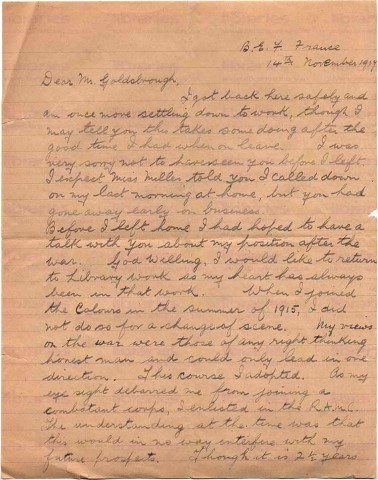 B.E.F. France
14th November 1917
Dear Mr. Goldsbrough,
I got back here safely and
am once more settling down to work, though I
may tell you this takes some doing after the
good time I had when on leave. I was
very sorry not to have seen you before I left
I expect Miss Miller told you I called down
on my last morning at home, but you had
gone away early on business.
Before I left home I had hoped to have a
talk with you about my position after the
war. God Willing, I would like to return
to library work as my heart has always
been in that work. When I joined
the Colours in the summer of 1915, I did
not do so for a change of scene. My views
on the war were those of any right thinking
honest man and could only lead in one
direction. This course I adopted. As my
eye sight debarred me from joining a
combatant corps, I enlisted in the R.A.M.C.
The understanding at the time was that
this would in no way interfere with my
future prospects. Though it is 2½ years